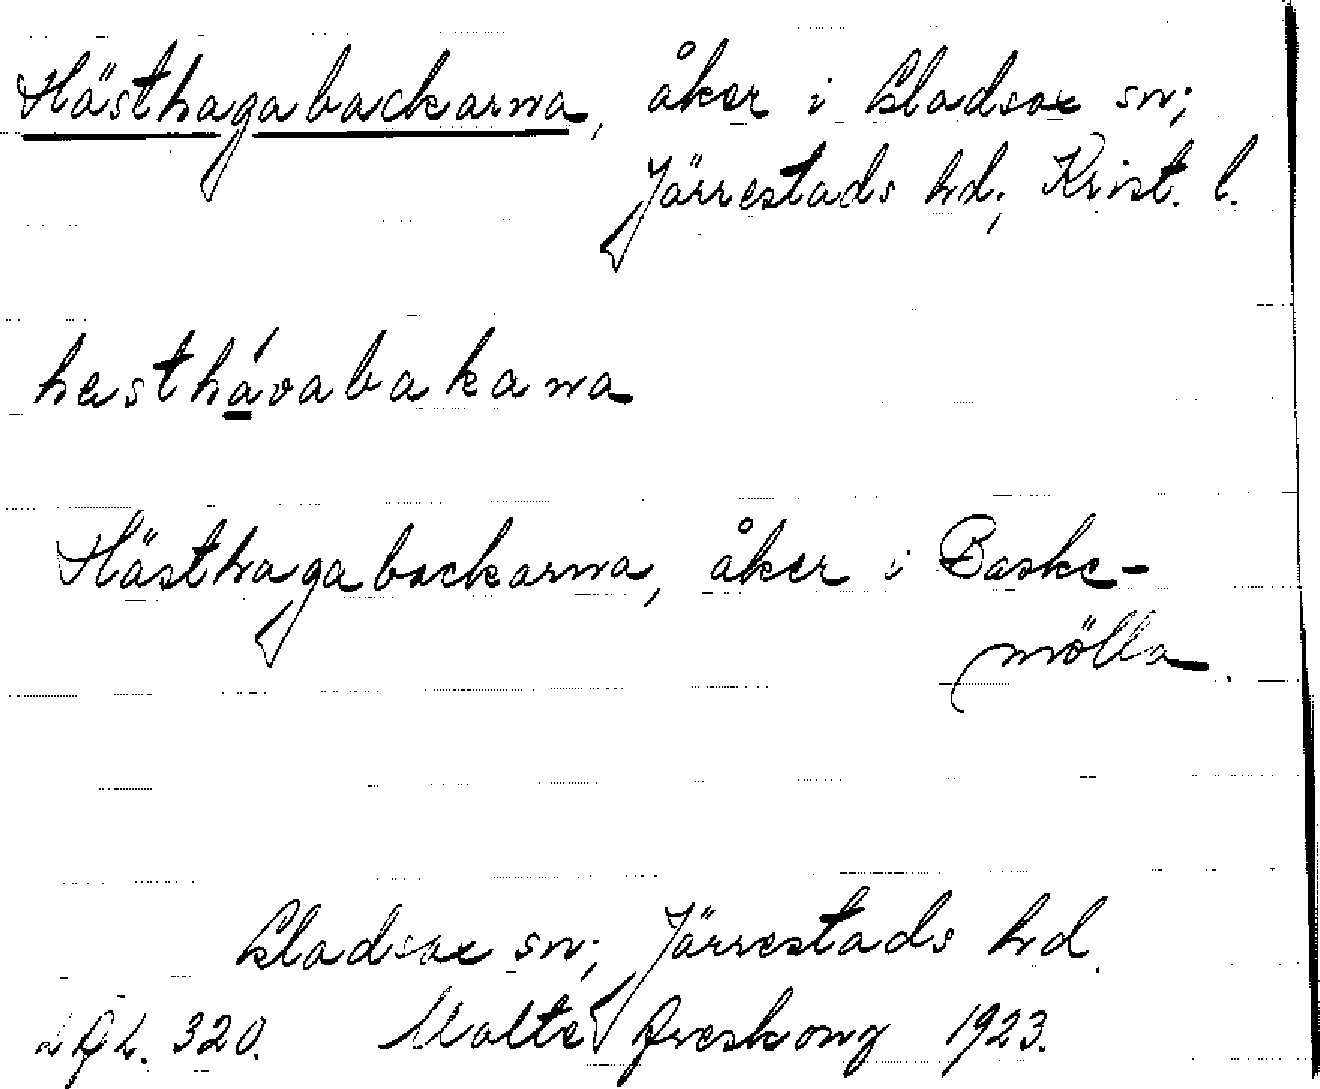 Hästhagabackarna, åker i Gladsax sn;
Järrestads hd; Krist. l.
hästhávabakana
Hästhagabackarna, åker i Baske-
mölla.
Gladsax sn; Järrestads hd.
320. Malte Areskoug 1923.